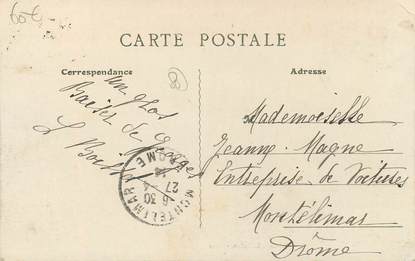 60€
CARTE POSTALE
Correspondance
Adresse
un gros
Baiser de Georges
L
Mademoiselle
Jeanne Magne
Entreprise de Voitures
Montélimar
Drôme
MONTELIMAR
DROME
6 30
27 -4